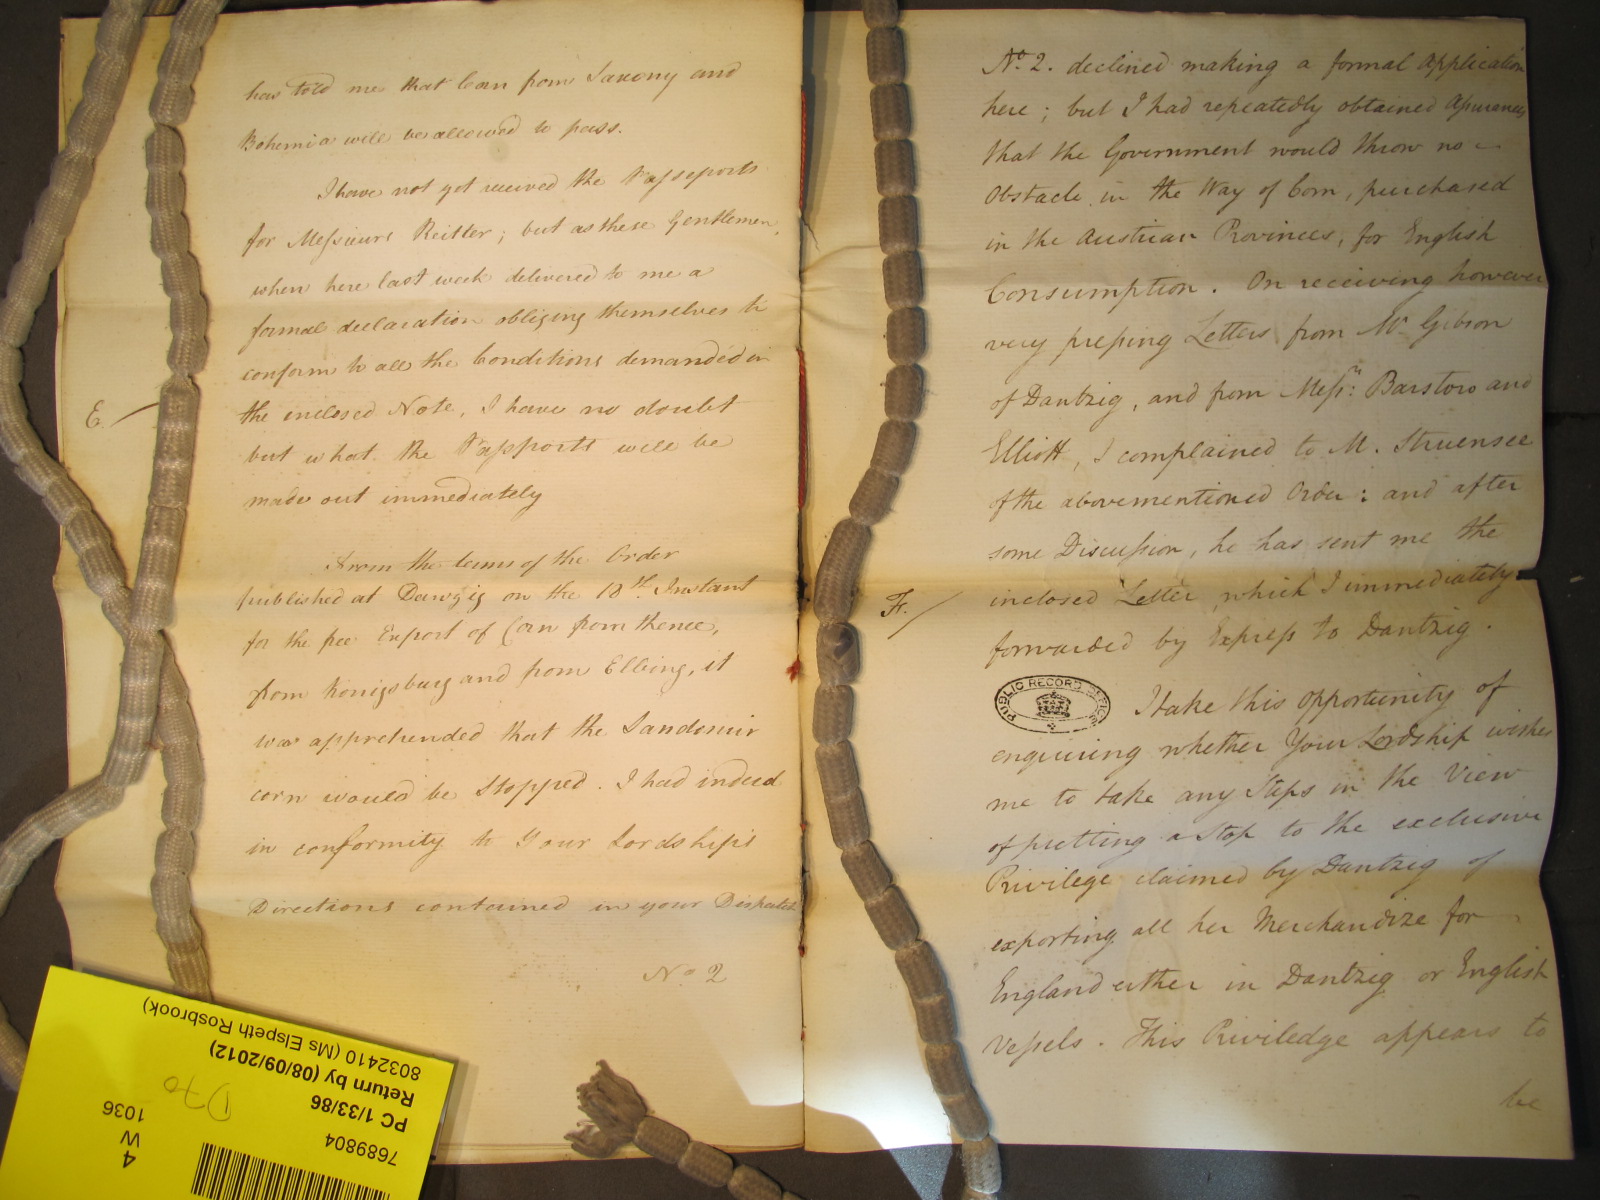 has told me that Corn from Saxony and
Bohemia will be allowed to pass.
I have not yet received the Passeports
for Messieurs Reitter; but as these Gentlemen,
when here last week delivered to me a
formal declaration obliging themselves to
conform to all the Conditions demanded in
E. /
the inclosed Note, I have no doubt
but what the Passports will be
made out immediately
From the terms of the Order
published at Danzig on the 18th. Instant
for the free Export of Corn from thence,
from Konigsburg and from Elbing, it
was apprehended that the Sandomir
corn would be Stopped. I had indeed
in conformity to Your Lordship's
Directions contained in your Dispatch
No 2
No. 2. declined making a formal Application
here; but I had repeatedly obtained Assurances
that the Government would throw no
Obstacle in the Way of Corn, purchased
in the Austrian Provinces, for English
Consumption. On receiving however
very pressing Letters from Mr Gibson
of Dantzig, and from Messrs: Barstow and
Elliott, I complained to M. Struensee
of the abovementioned Order: and after
some Discussion, he has sent me the
F. /
inclosed Letter, which I immediately
forwarded by Express to Dantzig.
PUBLIC RECORD OFFICE
I take this Opportunity of
enquiring whether Your Lordship wishes
me to take any Steps in the View
of putting a Stop to the exclusive
Privilege claimed by Dantzig of
exporting all her Merchandize for
England either in Dantzig or English
Vessels. This Priviledge appears to
be
7689804
PC 1/33/86
Return by (08/09/2012)
8032410 (Ms Elspeth Rosbrook)
4
W
1036
D70